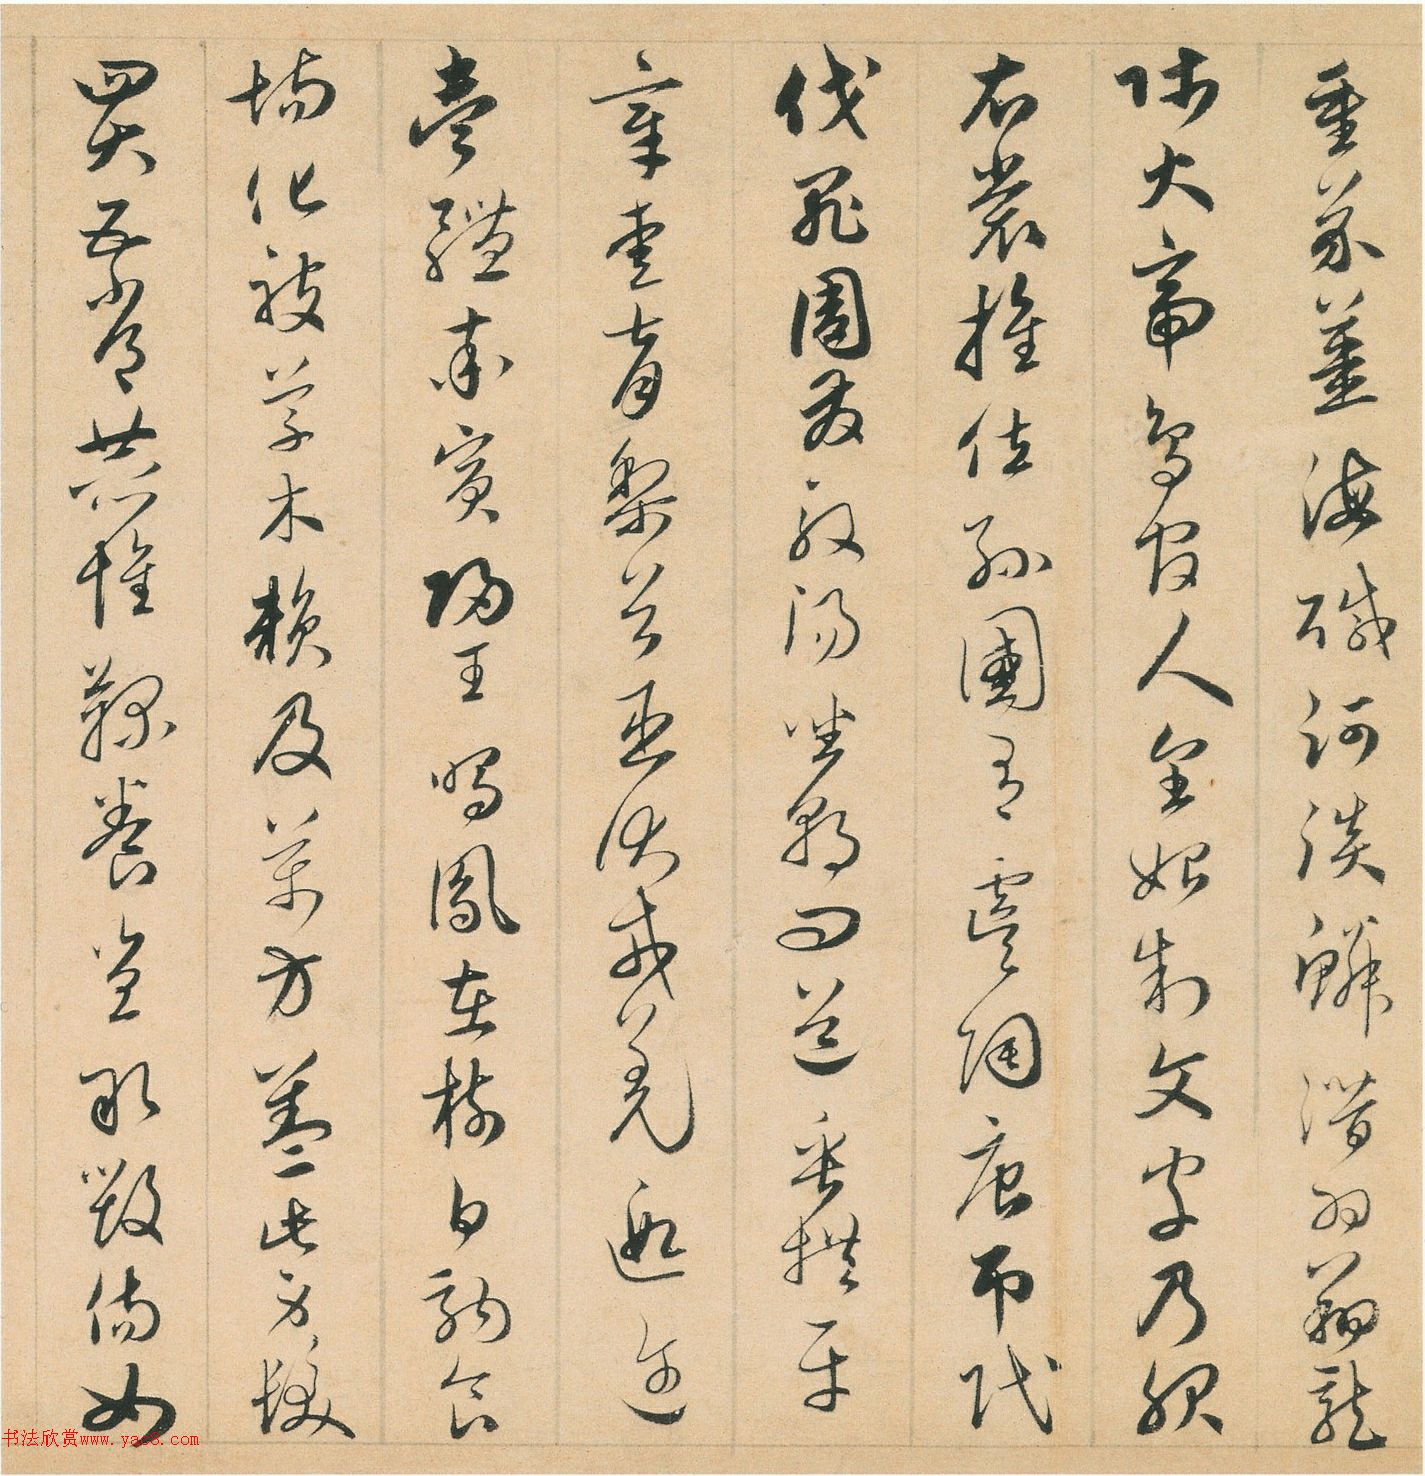 重芥薑海醎河淡鱗潛羽翔龍
師火帝鳥官人皇始制文字乃服
衣裳推位遜國有虞陶唐弔民
伐罪周發殷湯坐朝問道垂拱平
章愛育黎首臣伏戎羌遐邇
壹體率賓歸王鳴鳳在樹白駒食
場化被草木賴及萬方蓋此身髮
四大五常恭惟鞠養豈敢毀傷女
书法欣赏www.yac8.com